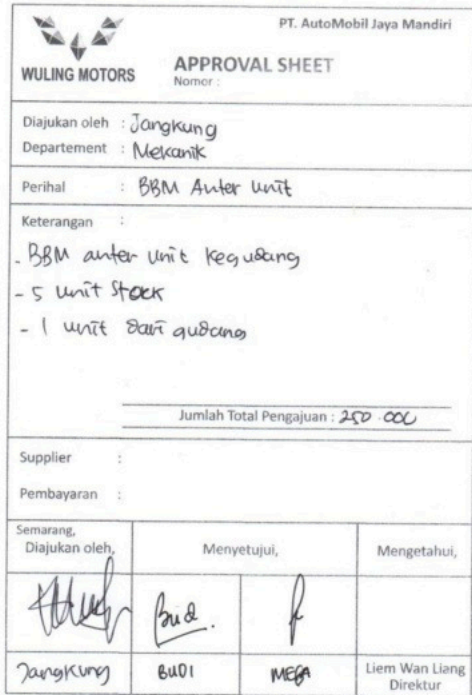 PT. AutoMobil Jaya Mandiri
WULING MOTORS
APPROVAL SHEET
Nomor :
Diajukan oleh : Jangkung
Departement : Mekanik
Perihal : BBM Anter Unit
Keterangan :
- BBM anter unit kegudang
- 5 unit stock
- 1 unit dari gudang
Jumlah Total Pengajuan : 250.000
Supplier :
Pembayaran :
Semarang,
Diajukan oleh, Menyetujui, Mengetahui,
Budi.
Jangkung BUDI MEGA Liem Wan Liang
Direktur